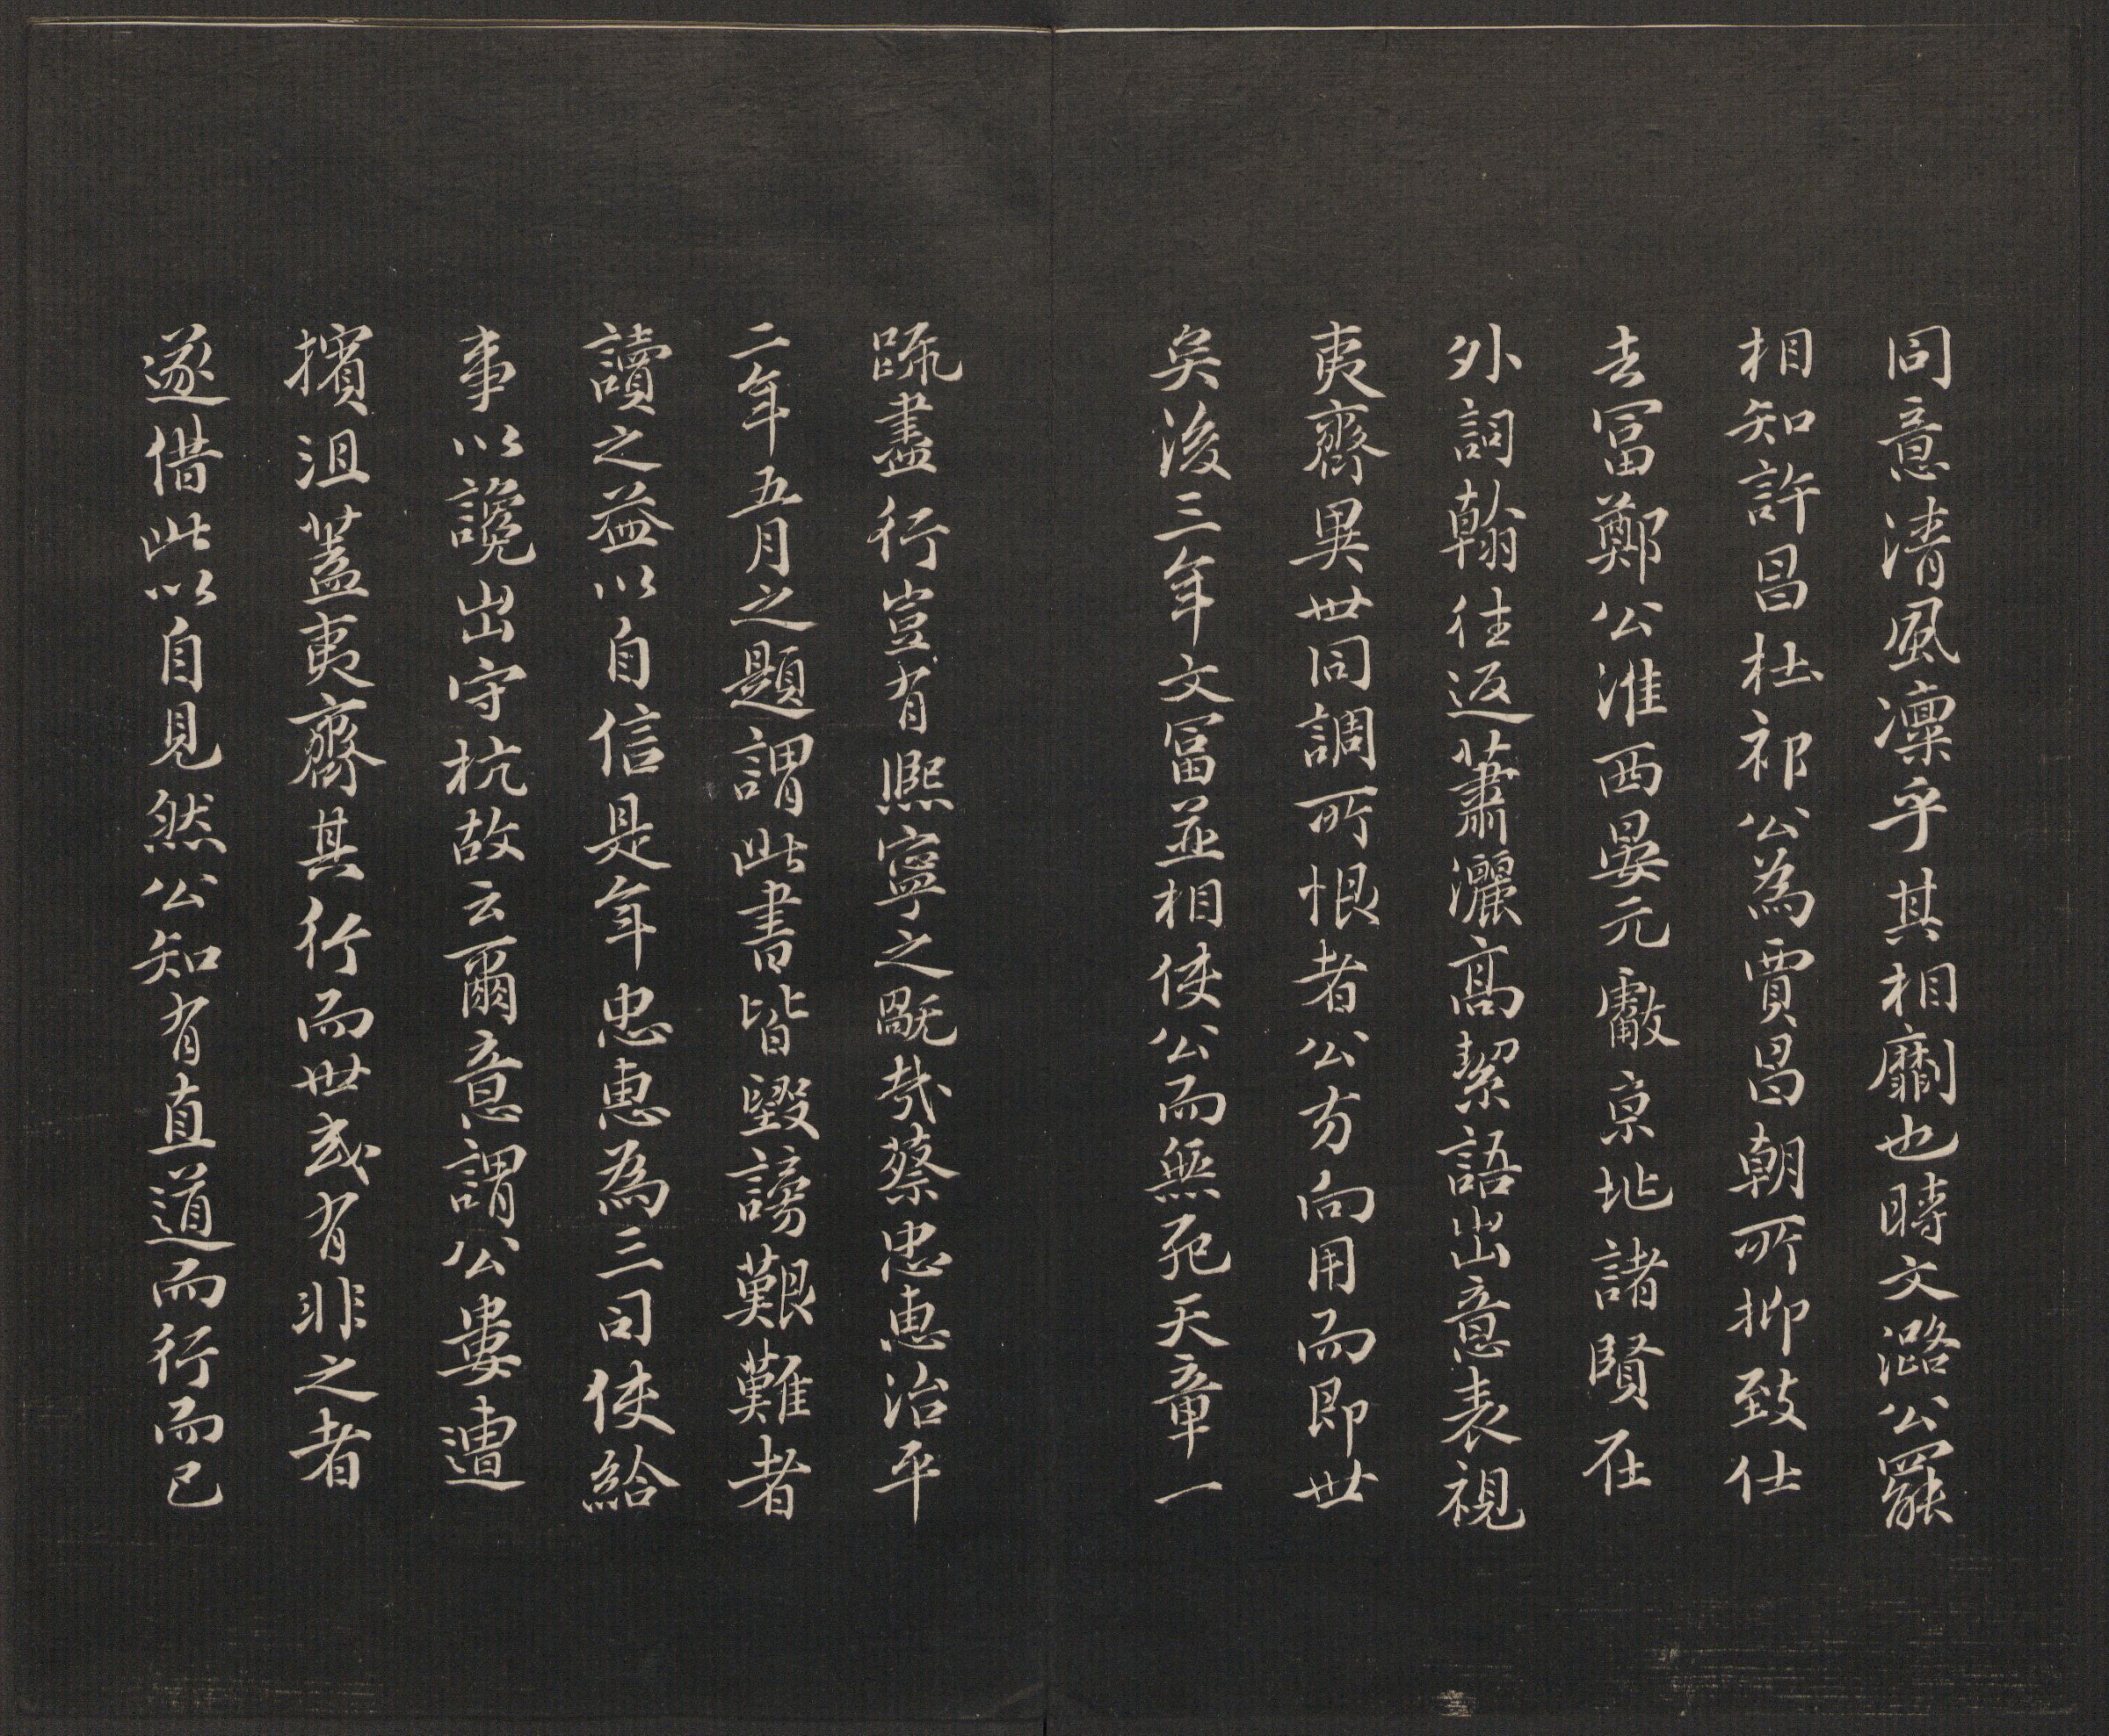 同意清風凜乎其相劘也時文潞公罷
相知許昌杜祁公為賈昌朝所抑致仕
去冨鄭公淮西晏元獻京地諸賢在
外詞翰往返蕭灑高絜語出意表視
夷齊異世同調所恨者公方向用而即世
矣後三年文冨並相使公而無死天章一
疏盡行豈有熙寧之毀哉蔡忠惠治平
二年五月之題謂此書皆毀謗艱難者
讀之益以自信是年忠惠為三司使給
事以讒出守杭故云爾意謂公婁遭
擯沮蓋夷齊其行而世或有非之者
遂借此以自見然公知有直道而行而已